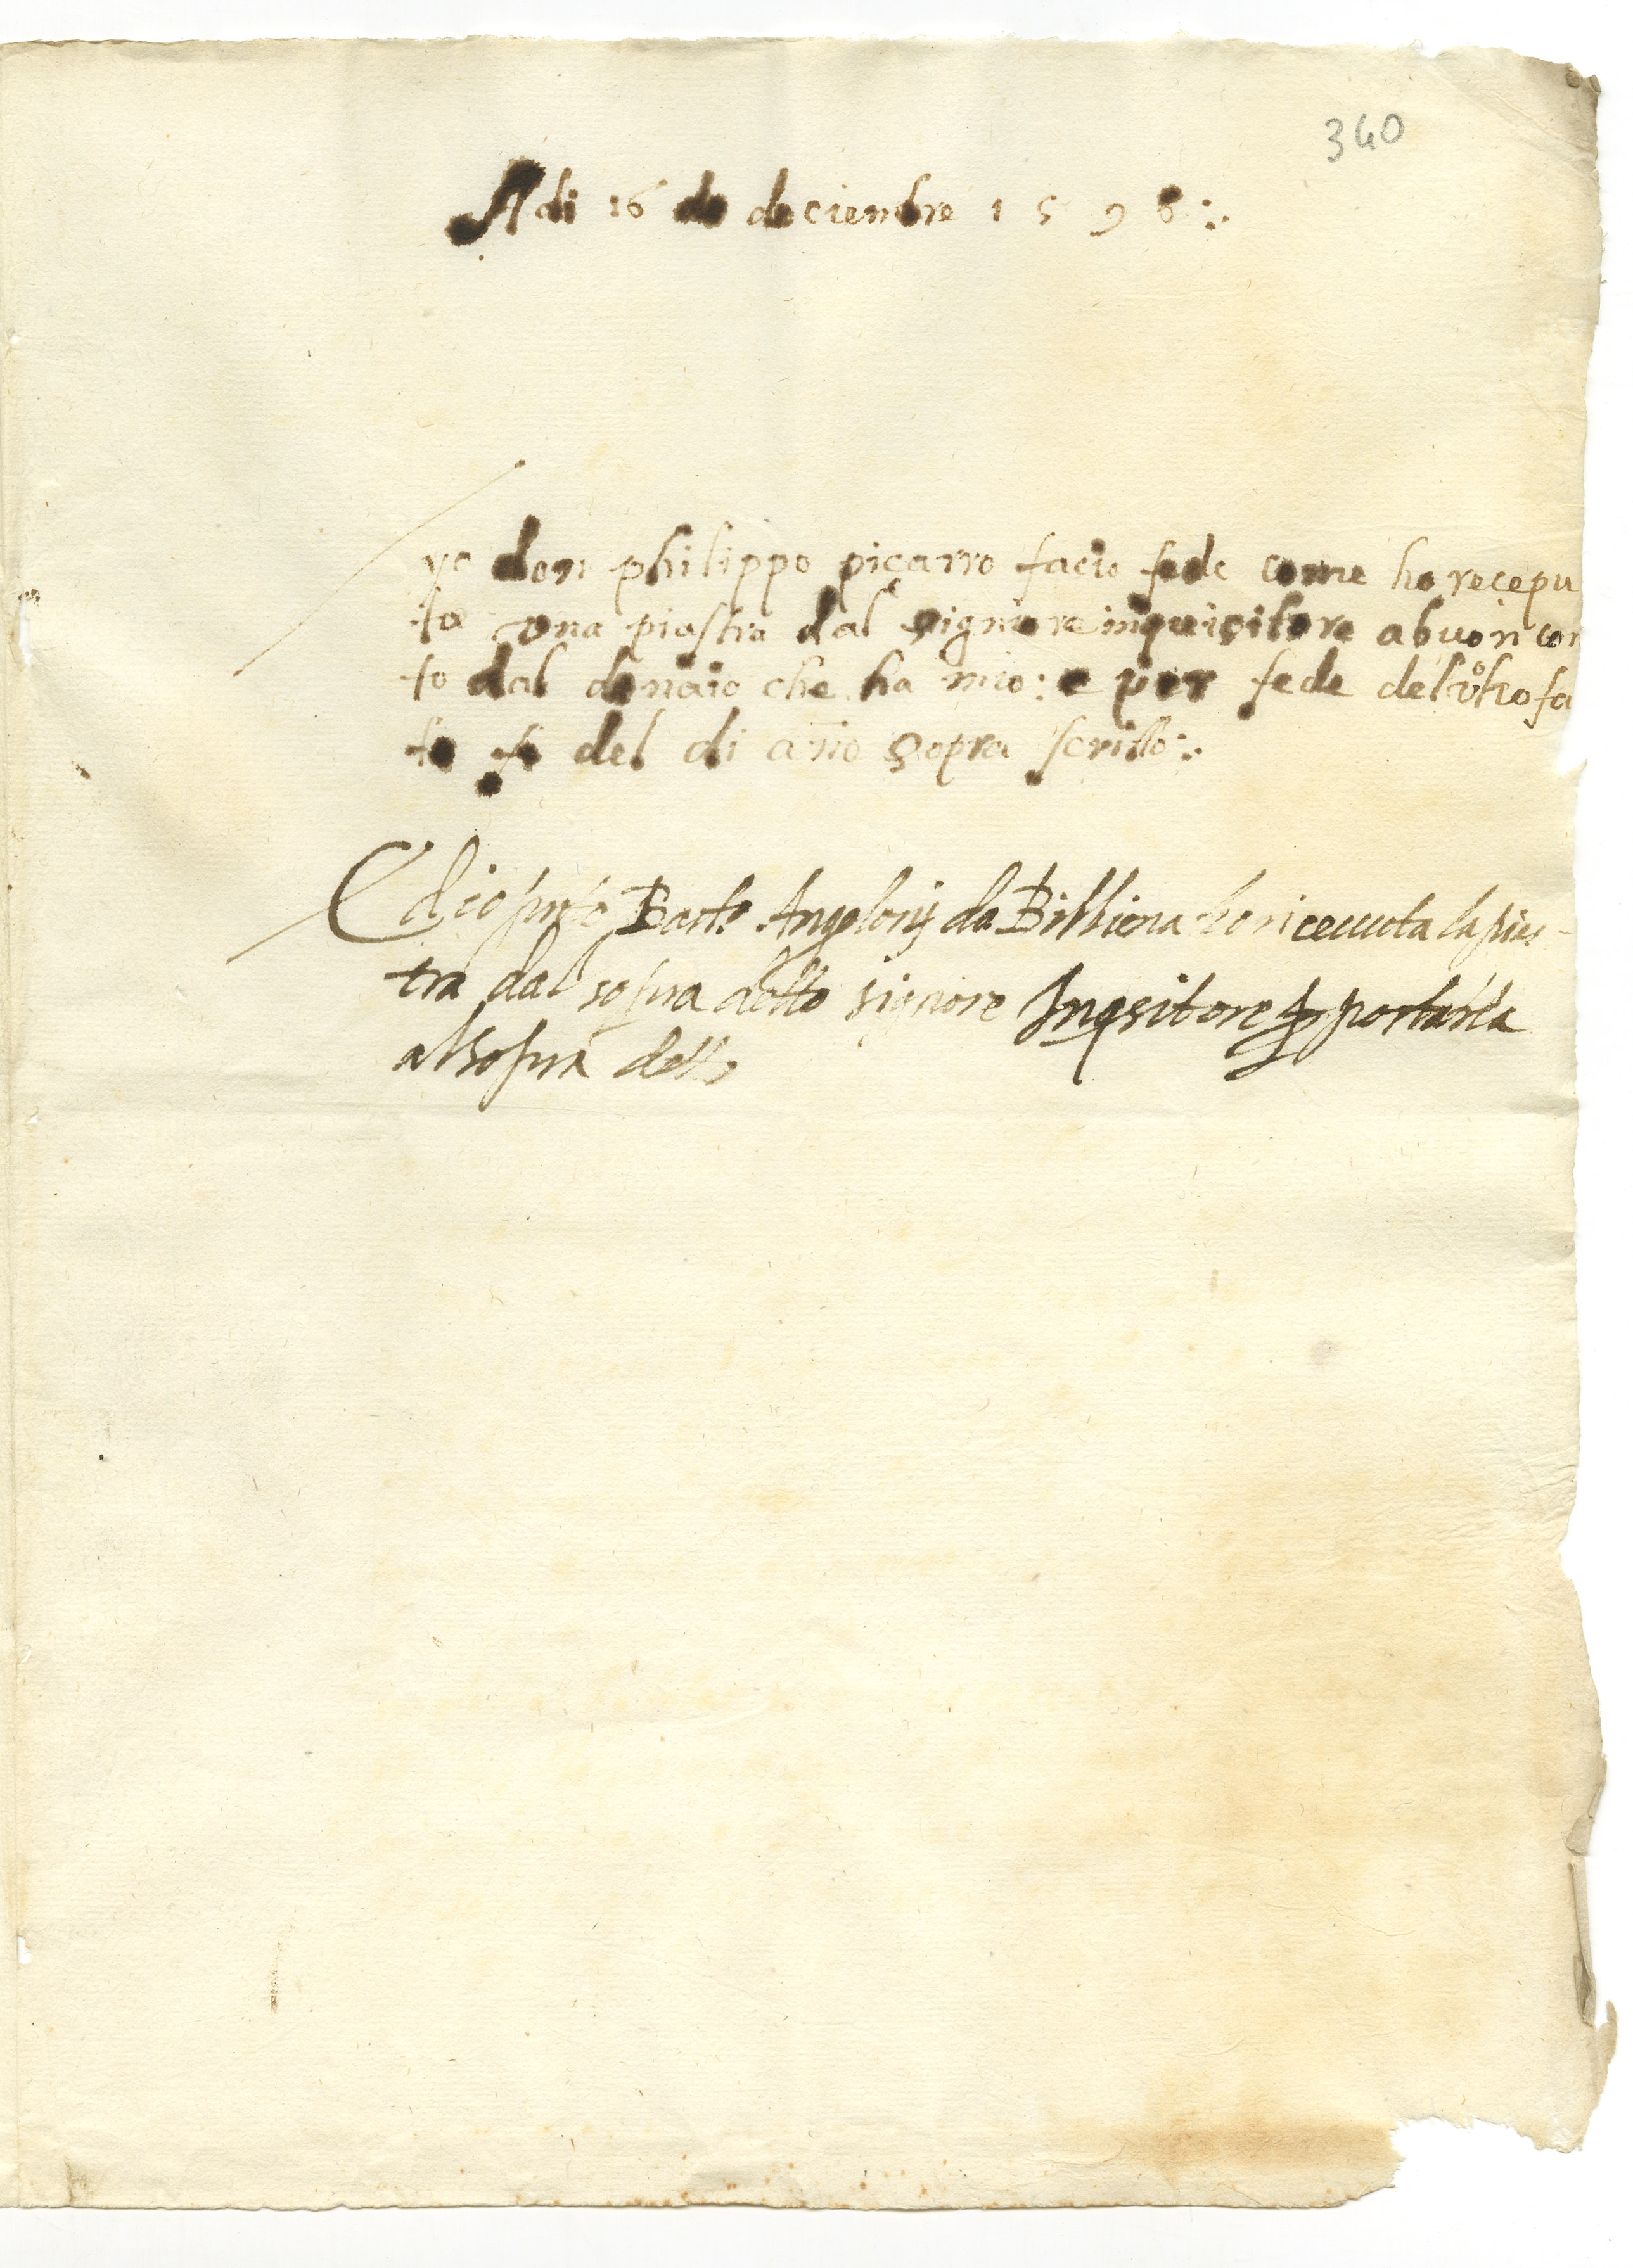 340
Adi 16 de deciembre 1598:.
yo don philippo piçarro facio fede come ho recepu
to una piastra dal signore inquisitore a buon con
to dal denaio che ha mio: e per fede del
to fo del di año sopra scritto:.
Ed io Angelonij da Bibbiena ho riceuuta la pias-
tra dal sopra detto signore Inqsitore p portarla
al sopra detto